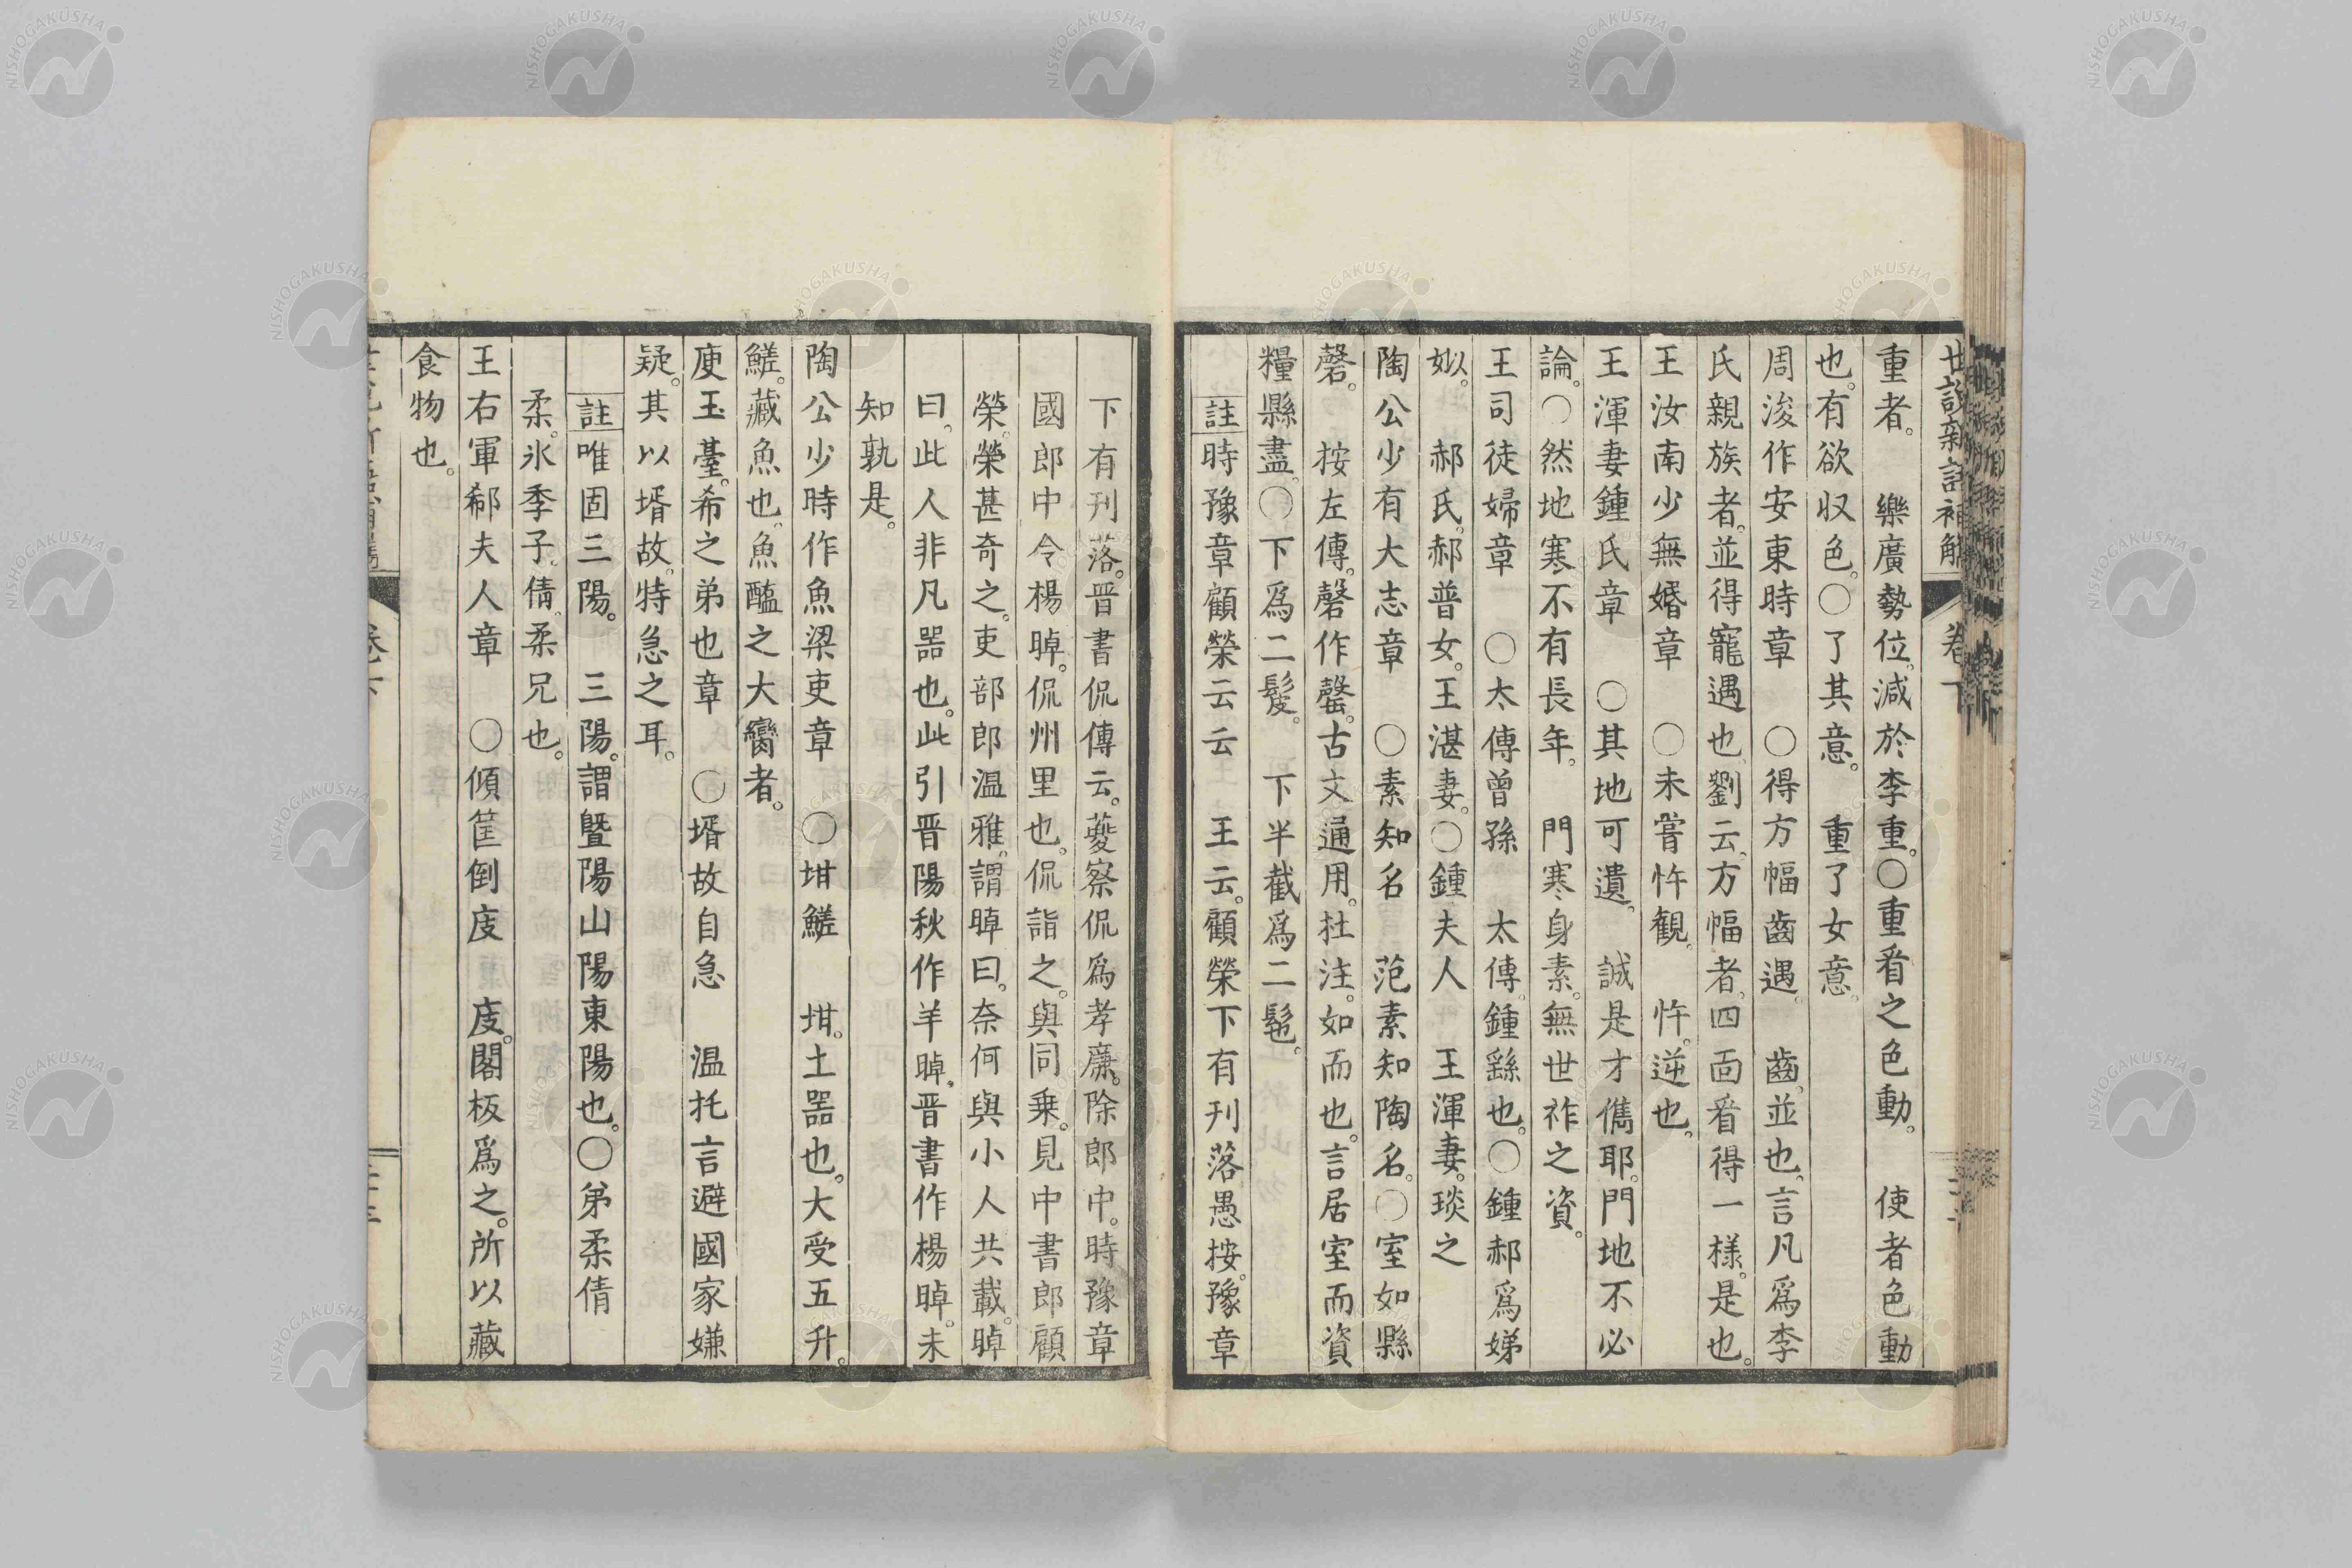 世說新語補觧 卷下
重者。 樂廣勢位。減於李重。〇重看之色動。 使者色動
也。有欲収色。〇了其意。 重了女意。
周浚作安東時章 〇得方幅齒遇。 齒。並也。言凡爲李
氏親族者。並得寵遇也。劉云。方幅者。四面看得一樣。是也。
王汝南少無婚章 〇未甞忤觀。 忤。逆也。
王渾妻鍾氏章 〇其地可遺。 誠是才儁耶。門地不必
論。〇然地寒不有長年。 門寒身素。無世祚之資。
王司徒婦章 〇太傅曾孫 太傅。鍾繇也。〇鍾郝爲娣
姒。 郝氏。郝普女。王湛妻。〇鍾夫人 王渾妻。琰之
陶公少有大志章 〇素知名 范素知陶名。〇室如縣
磬。 按左傳。磬作罄。古文通用。杜注。如而也。言居室而資
糧縣盡。〇下爲二髲。 下半截爲二髢。
註時豫章顧榮云云 王云。顧榮下有刊落愚按。豫章
下有刊落。晋書侃傳云。夔察侃爲孝廉。除郎中。時豫章
國郎中令楊晫。侃州里也。侃詣之。與同乗。見中書郎顧
榮。榮甚奇之。吏部郎温雅。謂晫曰。奈何與小人共載。晫
曰。此人非凡器也。此引晋陽秋作羊晫。晋書作楊晫。未
知孰是。
陶公少時作魚梁吏章 〇坩鱃 坩。土器也。大受五升。
鱃。藏魚也。魚醢之大臠者。
庾玉臺。希之弟也章 〇壻故自急 温托言避國家嫌
疑。其以壻故。特急之耳。
註唯固三陽。 三陽。謂曁陽山陽東陽也。〇弟柔倩
柔。氷季子。倩。柔兄也。
王右軍郗夫人章 〇傾筐倒庋 庋。閣板爲之。所以藏
食物也。